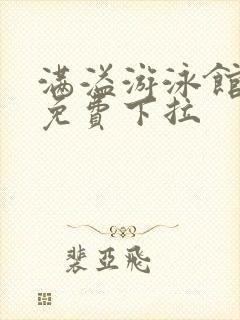 满溢游泳館
免費下拉
裴亞飛